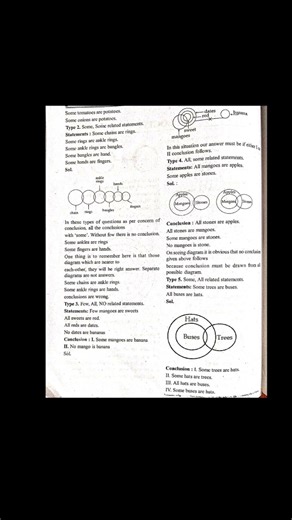 Some tomatoes are potatoes.
Some onions are potatoes.
Type 2. Some, Some related statements.
Statements : Some chains are rings.
Some rings are ankle rings.
Some ankle rings are bangles.
Some bangles are band.
Some bands are fingers.
Sol.
ankle
rings
bands
chain
rings
bangles
fingers
In these types of questions as per concern of
conclusion, all the conclusions
with "some". Without few there is no conclusion.
Some ankles are rings
Some fingers are bands.
One thing is to remember here is that those
diagram which are nearer to
each-other, they will be right answer. Separate
diagrams are not answers.
Some chains are ankle rings
Some ankle rings are bands.
conclusions are wrong.
Type 3. Few, All, NO related statements.
Statements: Few mangoes are sweets
All sweets are red.
All reds are dates.
No dates are bananas
Conclusion : I. Some mangoes are banana
II. No mango is banana
Sol.
dates
red
banana
sweet
mangoes
In this situation our answer must be if either I
II conclusion follows.
Type 4. All, some related statements.
Statements: All mangoes are apples.
Some apples are stones.
Sol. :
Apples
Mangoes
Stones
Apples
Mangoes
Stones
Conclusion : All stones are apples.
All stones are mangoes.
Some mangoes are stones.
No mangoes is stone.
On seeing diagram it is obvious that no conclusion
given above follows
Because conclusion must be drawn from all
possible diagram.
Type 5. Some, All related statements.
Statements: Some trees are buses.
All buses are hats.
Sol.
Hats
Buses
Trees
Conclusion : I. Some trees are hats.
II. Some hats are trees.
III. All hats are buses.
IV. Some buses are hats.